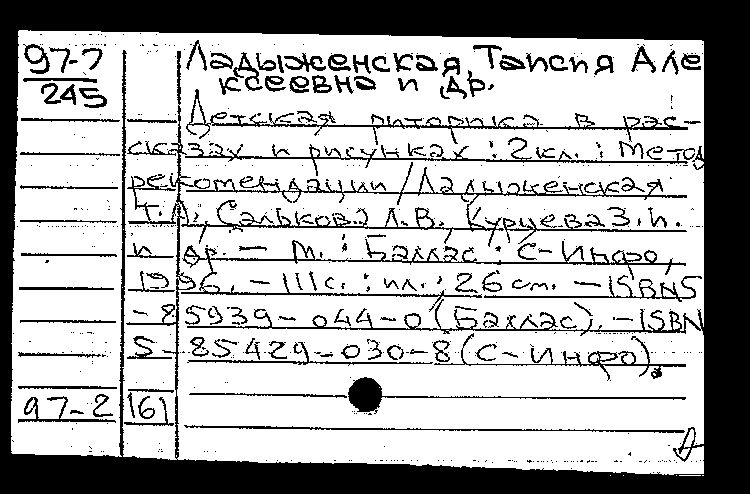 97-7
245
Ладыженская, Таисия Але
ксеевна и др.
Детская риторика в рас-
сказах и рисунках : 2кл. : Метод
рекомендации / Ладыженская
Т.А., Салькова Л.В., Курцева З.И.
и др. — М. : Баллас : С-Инфо,
1996. — 111с. : ил. ; 26 см. — ISBN5
-85939-044-0 (Баллас). — ISBN
5-85429-030-8 (С-Инфо).
97-2 161